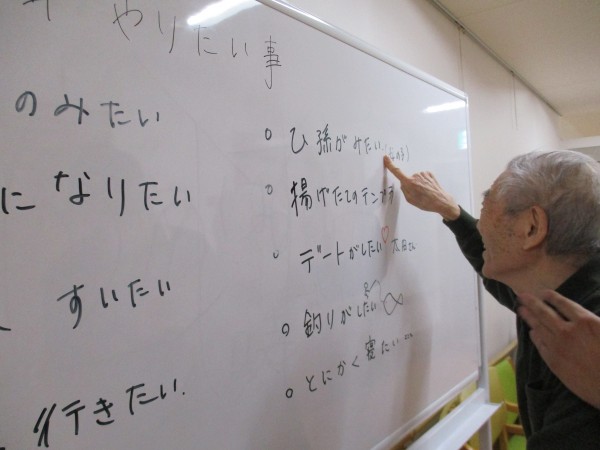 やりたい事
のみたい
になりたい
すいたい
行きたい.
○ ひ孫がみたい(女の子)
○ 揚げたてのテンプラ
○ デートがしたい♡
○ 釣りがしたい
○ とにかく寝たい